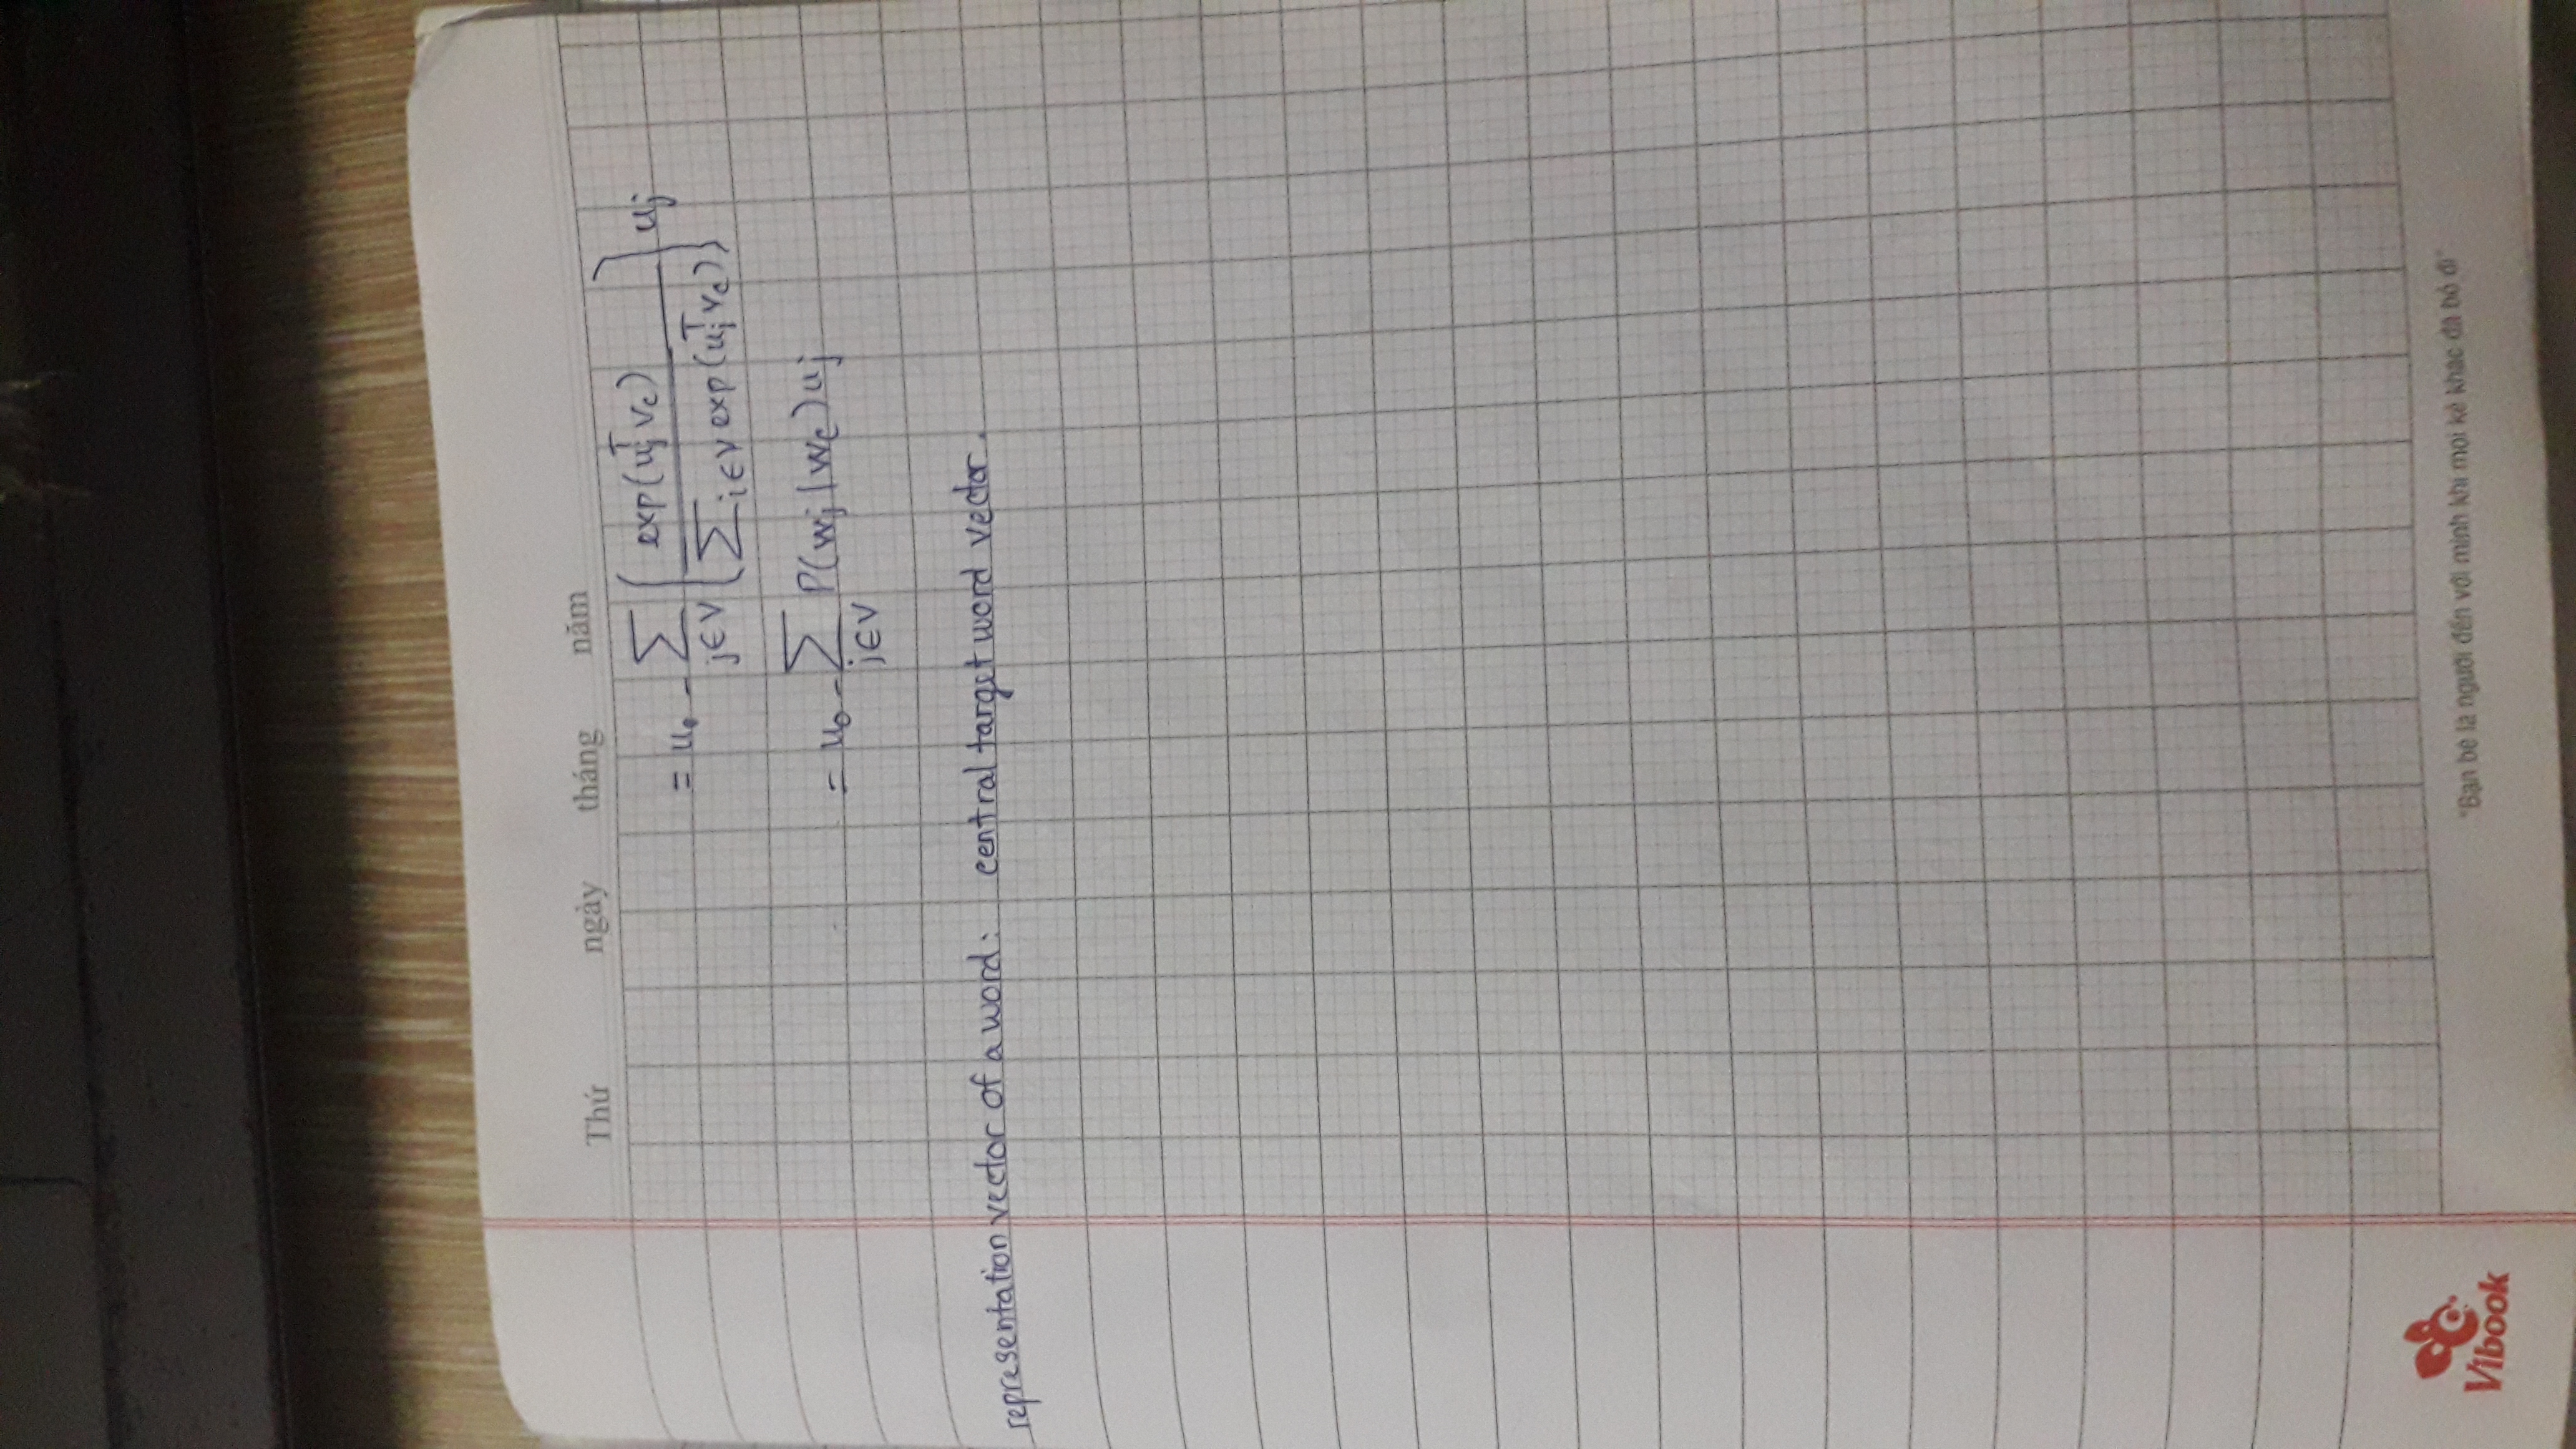 Thứ ngày tháng năm
= u₀ - ∑_{j∈V} ( exp(u_j^T v_c) / ∑_{i∈V} exp(u_i^T v_c) ) u_j
= u₀ - ∑_{j∈V} P(w_j | w_c) u_j
representation vector of a word: central target word vector.
Vibook
"Bạn bè là người đến với mình khi mọi kẻ khác đã bỏ đi"